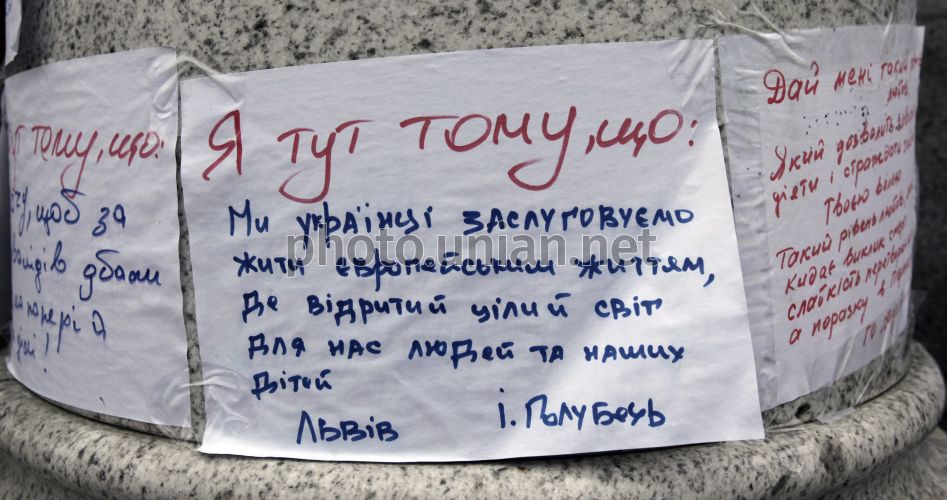 тут тому, що:
щоб за
дбали
папері а
Я тут тому, що:
Ми українці заслуговуємо
жити європейським життям,
де відритий цілий світ
для нас людей та наших
дітей
Львів І. Голубець
photo.unian.net
Дай мені такий
Який дозволить
діяти і страждати
Твоєю волею
Такий рівень
кидає виклик
слабкість
а поразку в